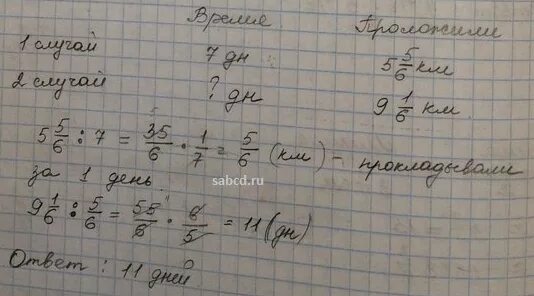 Время Проложили
1 случай 7 дн 5 5/6 км
2 случай ? дн 9 1/6 км
5 5/6 : 7 = 35/6 · 1/7 = 5/6 (км) – прокладывали
за 1 день.
sabcd.ru
9 1/6 : 5/6 = 55/6 · 6/5 = 11 (дн)
Ответ : 11 дней